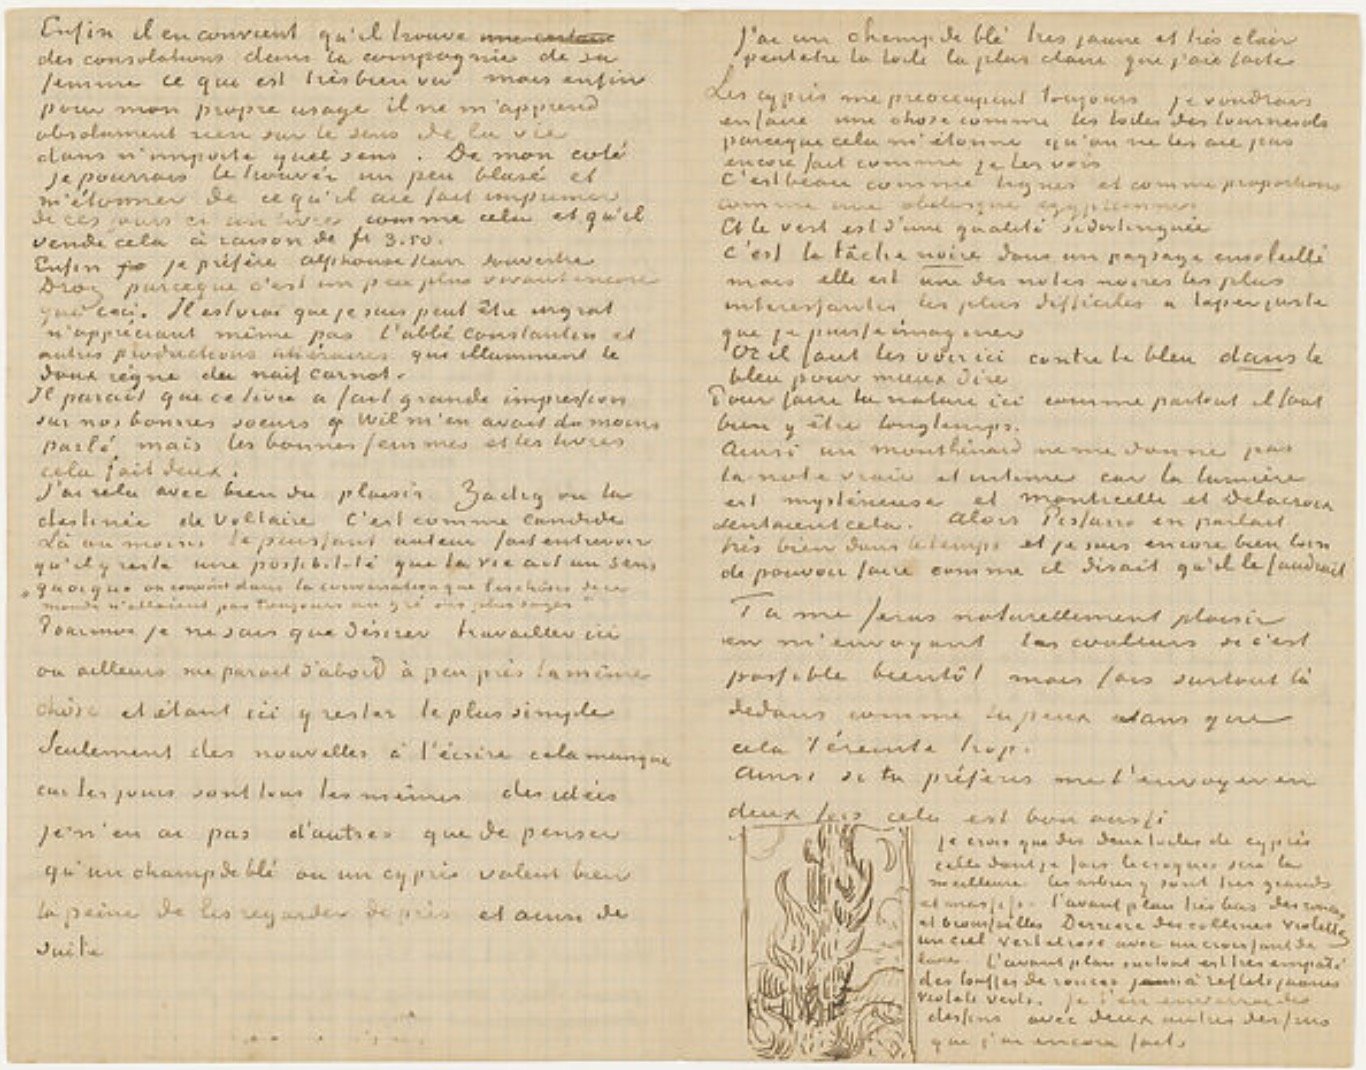 Enfin il en convient qu'il trouve une certaine
des consolations dans la compagnie de sa
femme ce que est très bien vu mais enfin
pour mon propre usage il ne m'apprend
absolument rien sur le sens de la vie
dans n'importe quel sens. De mon coté
je pourrais le trouver un peu blasé et
m'étonner de ce qu'il aie fait imprimer
de ces jours ci un livre comme cela et qu'il
vende cela à raison de fr 3.50.
Enfin je préfère alphonse Karr Souvestre
Droz parceque c'est un peu plus vivant encore
que ceci. Il est vrai que je suis peut être ingrat
n'appréciant même pas l'abbé Constantin et
autres productions littéraires qui illumment le
doux règne du naif Carnot.
Il parait que ce livre a fait grande impression
sur nos bonnes soeurs Wil m'en avait du moins
parlé mais les bonnes femmes et les livres
cela fait deux.
J'ai relu avec bien du plaisir Zadig ou la
destinée de Voltaire C'est comme Candide
Là au moins le puissant auteur fait entrevoir
qu'il y reste une possibilité que la vie ait un sens
"quoique on convint dans la conversation que les choses de ce
monde n'allaient pas toujours au gré des plus sages"
Pourmoi je ne sais que désirer travailler ici
ou ailleurs me parait d'abord à peu près la même
chose et étant ici y rester le plus simple
Seulement des nouvelles à t'écrire cela manque
car les jours sont tous les mêmes des idées
je n'en ai pas d'autres que de penser
qu'un champ de blé ou un cyprès valent bien
la peine de les regarder de près et ainsi de
suite
J'ai un champ de blé très jaune et très clair
peutetre la toile la plus claire que j'aie faite
Les cyprès me préoccupent toujours je voudrais
en faire une chose comme les toiles des tournesols
parceque cela m'étonne qu'on ne les aie pas
encore fait comme je les vois
C'est beau comme lignes et comme proportions
comme une obelisque egyptienne.
Et le vert est d'une qualité si distinguée
C'est la tâche noire dans un paysage ensoleillé
mais elle est une des notes noires les plus
interessantes les plus difficiles a taper juste
que je puisse imaginer
Or il faut les voir ici contre le bleu dans le
bleu pour mieux dire
Pour faire la nature ici comme partout il faut
bien y être longtemps.
Ainsi un monthénard ne me donne pas
la note vraie et intime car la lumière
est mystérieuse et Monticelli et Delacroix
sentaient cela. Alors Pissarro en parlait
très bien dans le temps et je suis encore bien loin
de pouvoir faire comme il disait qu'il le faudrait
Tu me feras naturellement plaisir
en m'envoyant les couleurs si c'est
possible bientôt mais fais surtout là
dedans comme tu peux sans que
cela t'éreinte trop.
Ainsi si tu préfères me l'envoyer en
deux fois cela est bon aussi
Je crois que des deux toiles de cyprès
celle dont je fais le croquis sera la
meilleure les arbres y sont très grands
et massifs. l'avant plan très bas des ronces
et broussailles Derrière des collines violettes
un ciel vert et rose avec un croissant de
lune. L'avant plan surtout est très empaté
des touffes de ronces à reflets jaunes
violets verts. Je t'en enverrai des
dessins avec deux autres dessins
que j'ai encore faits